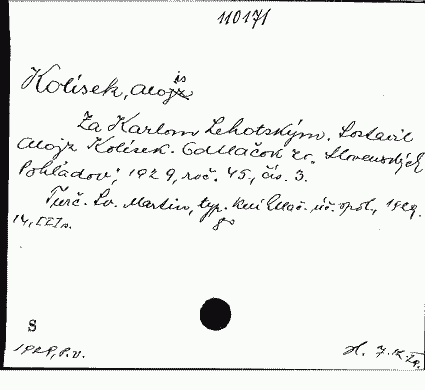 110171
Kolísek, Alojz
is
Za Karlom Lehotským. Sostavil
Alojz Kolísek. Odtlačok zo „Slovenských
Pohľadov", 1929, roč. 45., čís. 3.
Turč. Sv. Martin, typ. kníhtlač. úč. spol., 1929.
8°
14, [II] s.
S
1929, P.V.